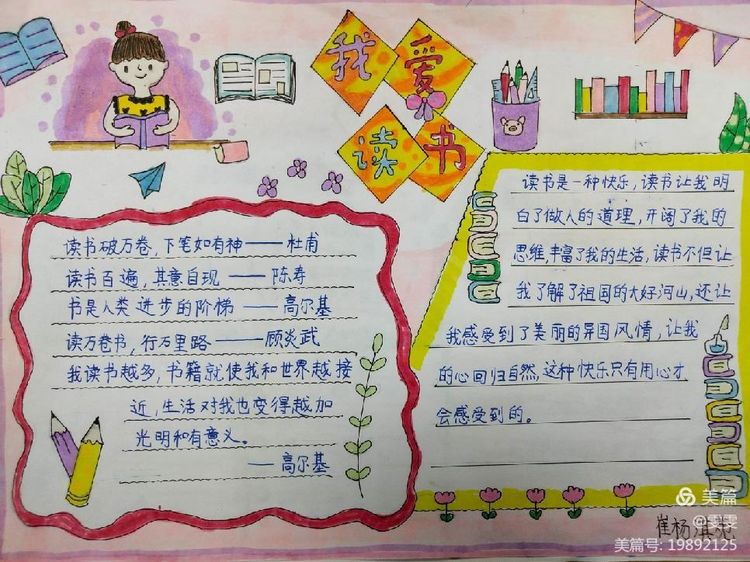 我爱
读书
读书破万卷，下笔如有神——杜甫
读书百遍，其意自现——陈寿
书是人类进步的阶梯——高尔基
读万卷书，行万里路——顾炎武
我读书越多，书籍就使我和世界越接
近，生活对我也变得越加
光明和有意义。
——高尔基
读书是一种快乐，读书让我明
白了做人的道理，开阔了我的
思维，丰富了我的生活，读书不但让
我了解了祖国的大好河山，还让
我感受到了美丽的异国风情，让我
的心回归自然，这种快乐只有用心才
会感受到的。
崔杨
美篇
@雯雯
美篇号: 19892125